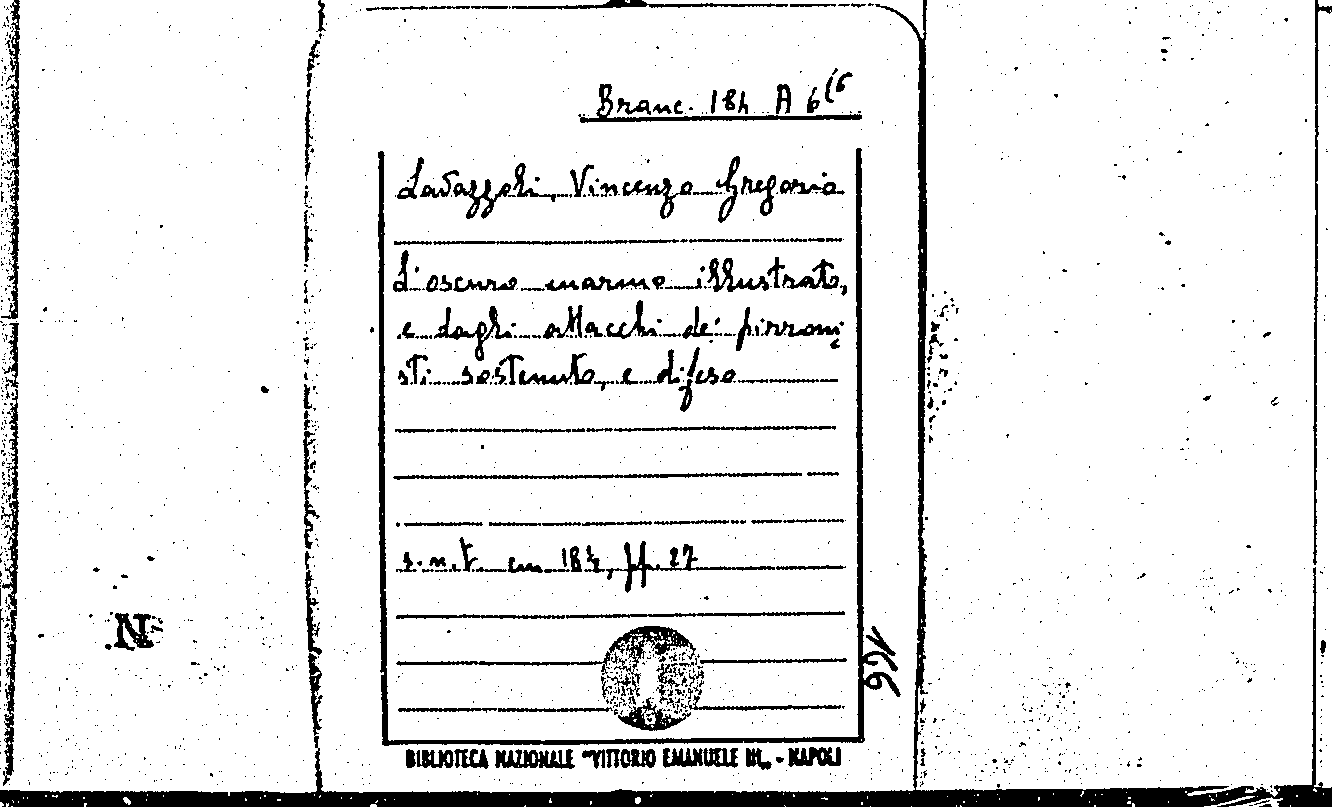 Branc. 184 A 6(6
Lavazzoli, Vincenzo Gregorio
L'oscuro marmo illustrato,
e dagli attacchi de' pirroni
sti sostenuto, e difeso
s.n.t. cm. 18½, pp. 27
166
BIBLIOTECA NAZIONALE "VITTORIO EMANUELE III„ - NAPOLI
N